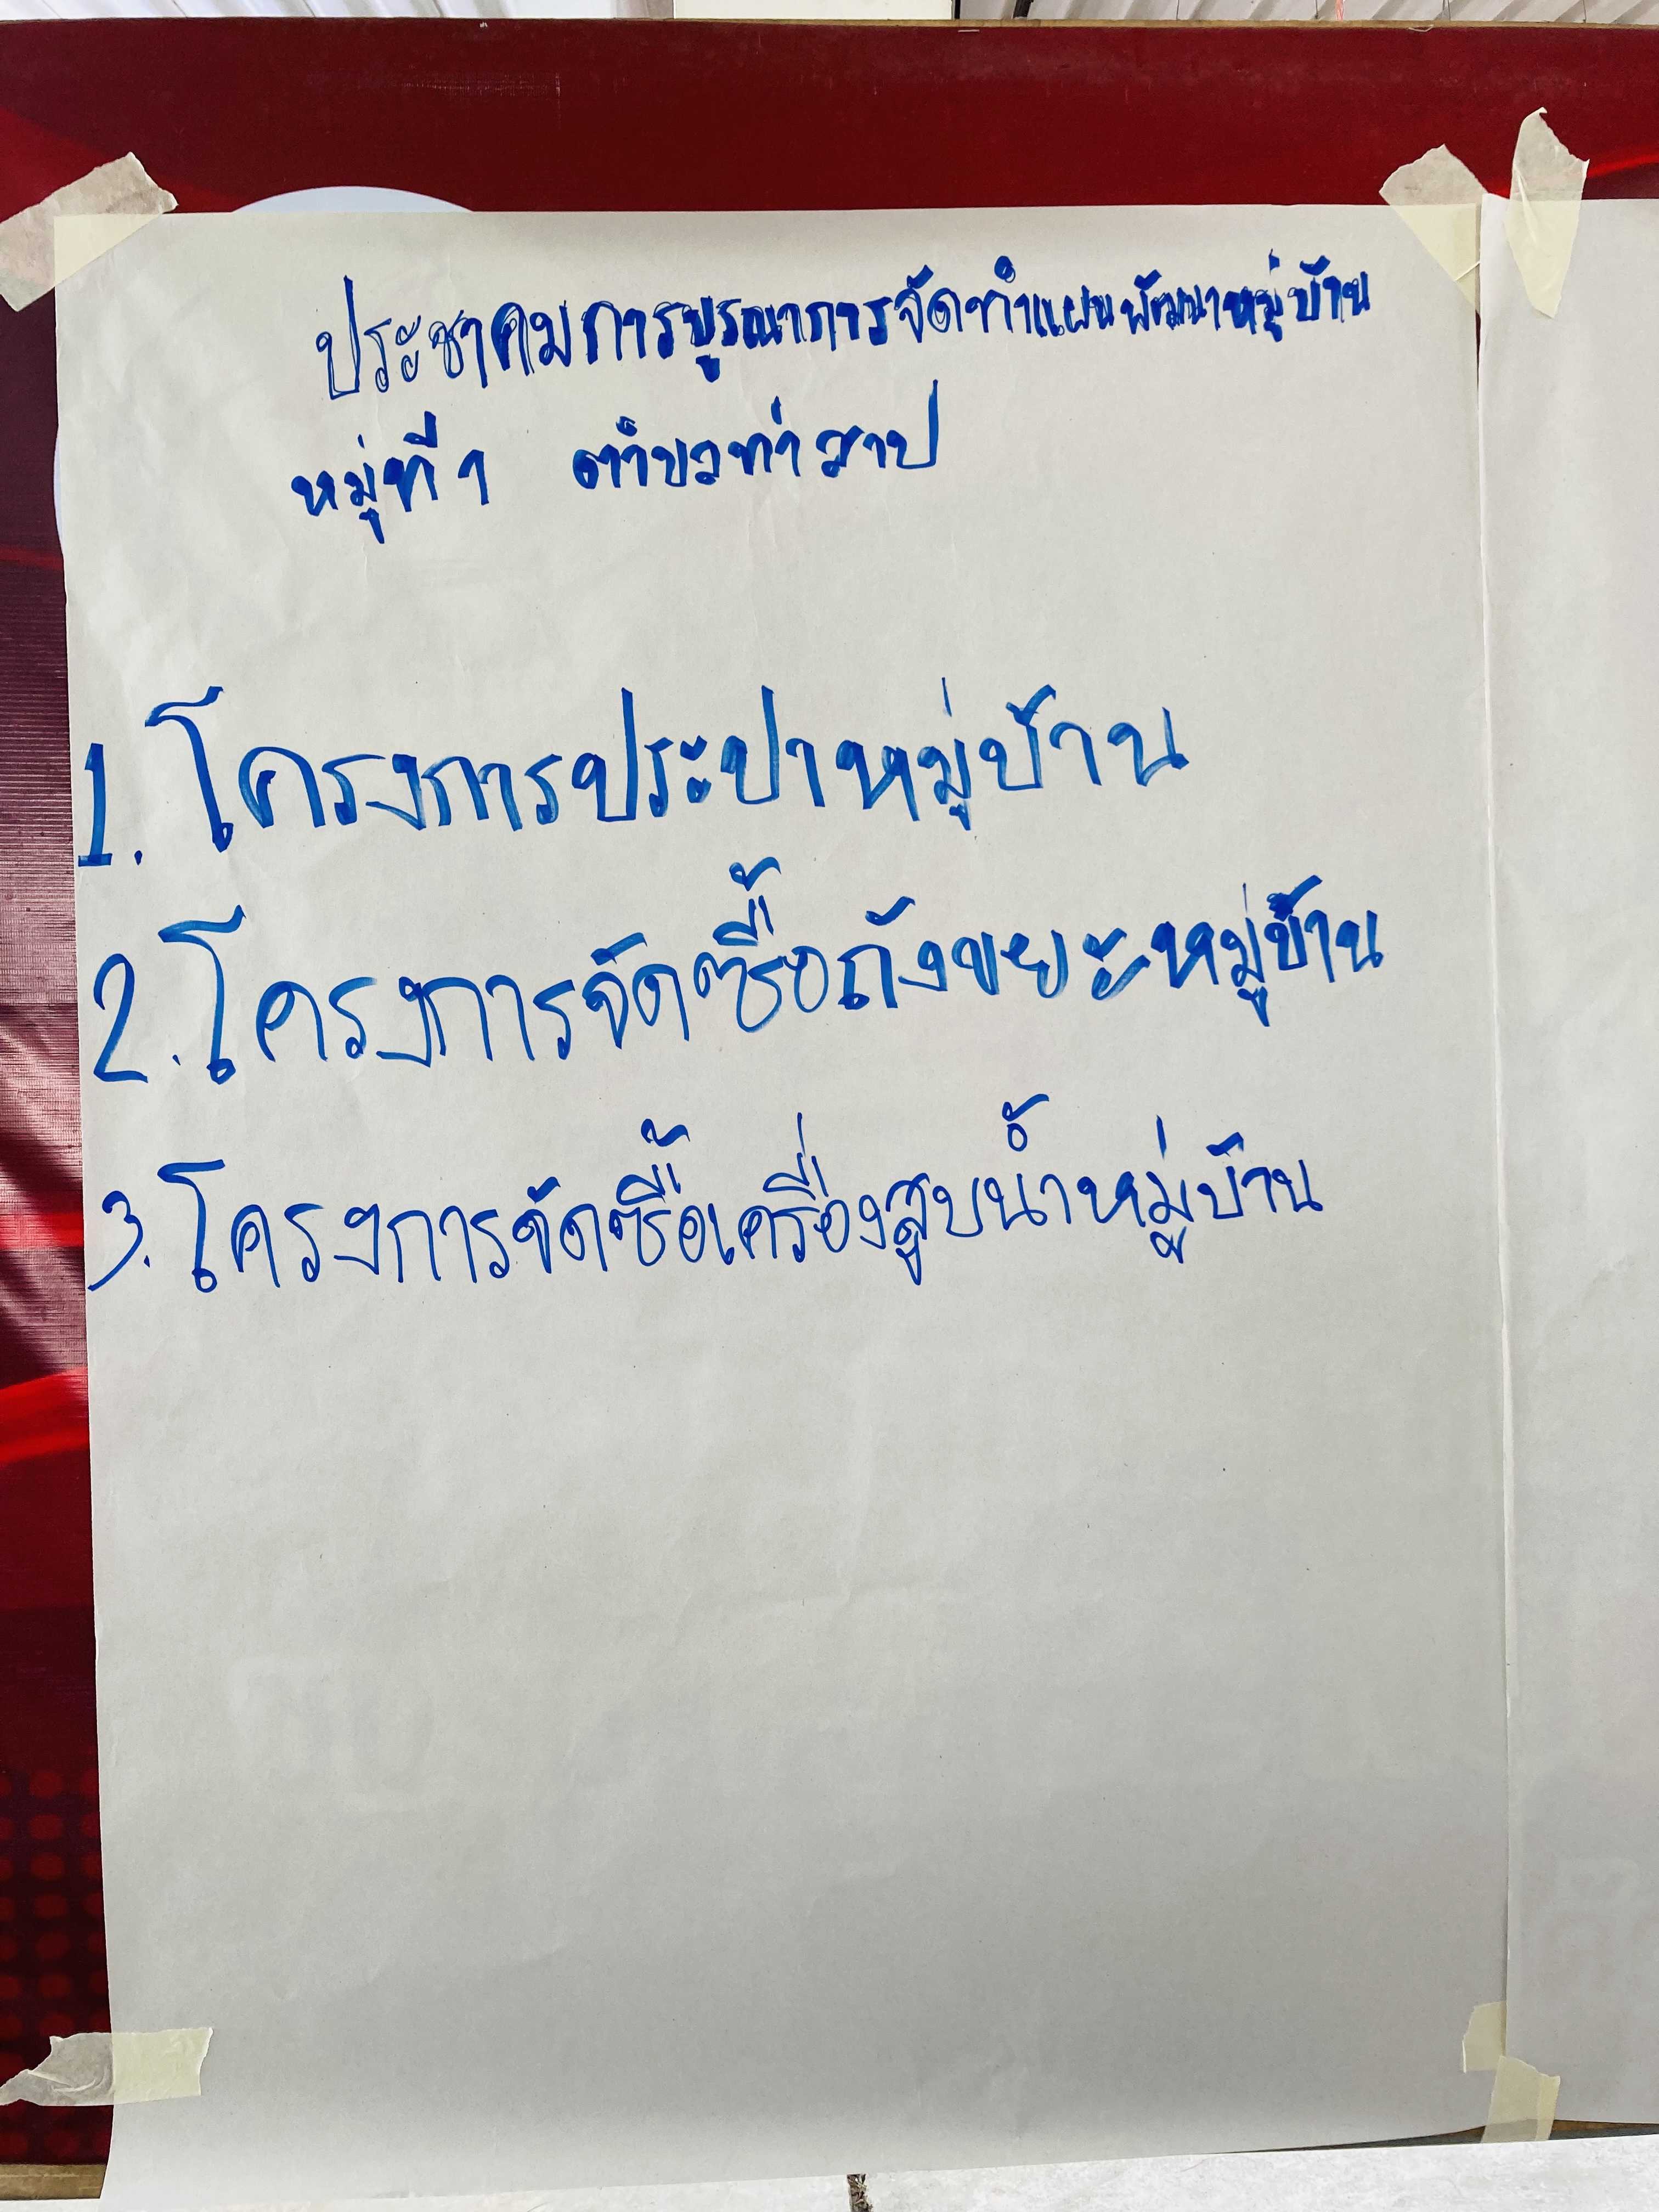 ประชาคมการบูรณาการจัดทำแผนพัฒนาหมู่บ้าน
หมู่ที่ 1 ตำบลท่าสาป
1. โครงการประปาหมู่บ้าน
2. โครงการจัดซื้อถังขยะหมู่บ้าน
3. โครงการจัดซื้อเครื่องสูบน้ำหมู่บ้าน